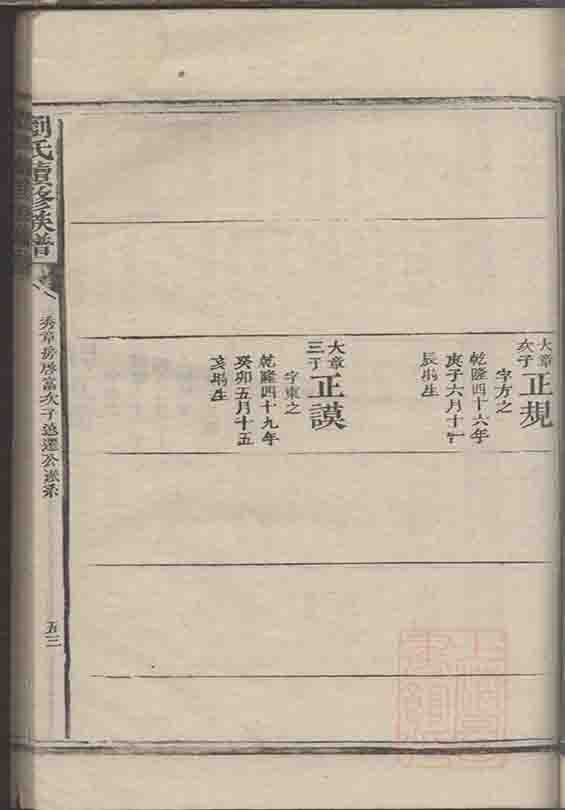 大章次子
正規
字方之
乾隆四十六年
庚子六月十
辰時生
大章三子
正謨
字東之
乾隆四十九年
癸卯五月十五
亥時生
劉氏續修族譜
秀章房啓富次子
五三